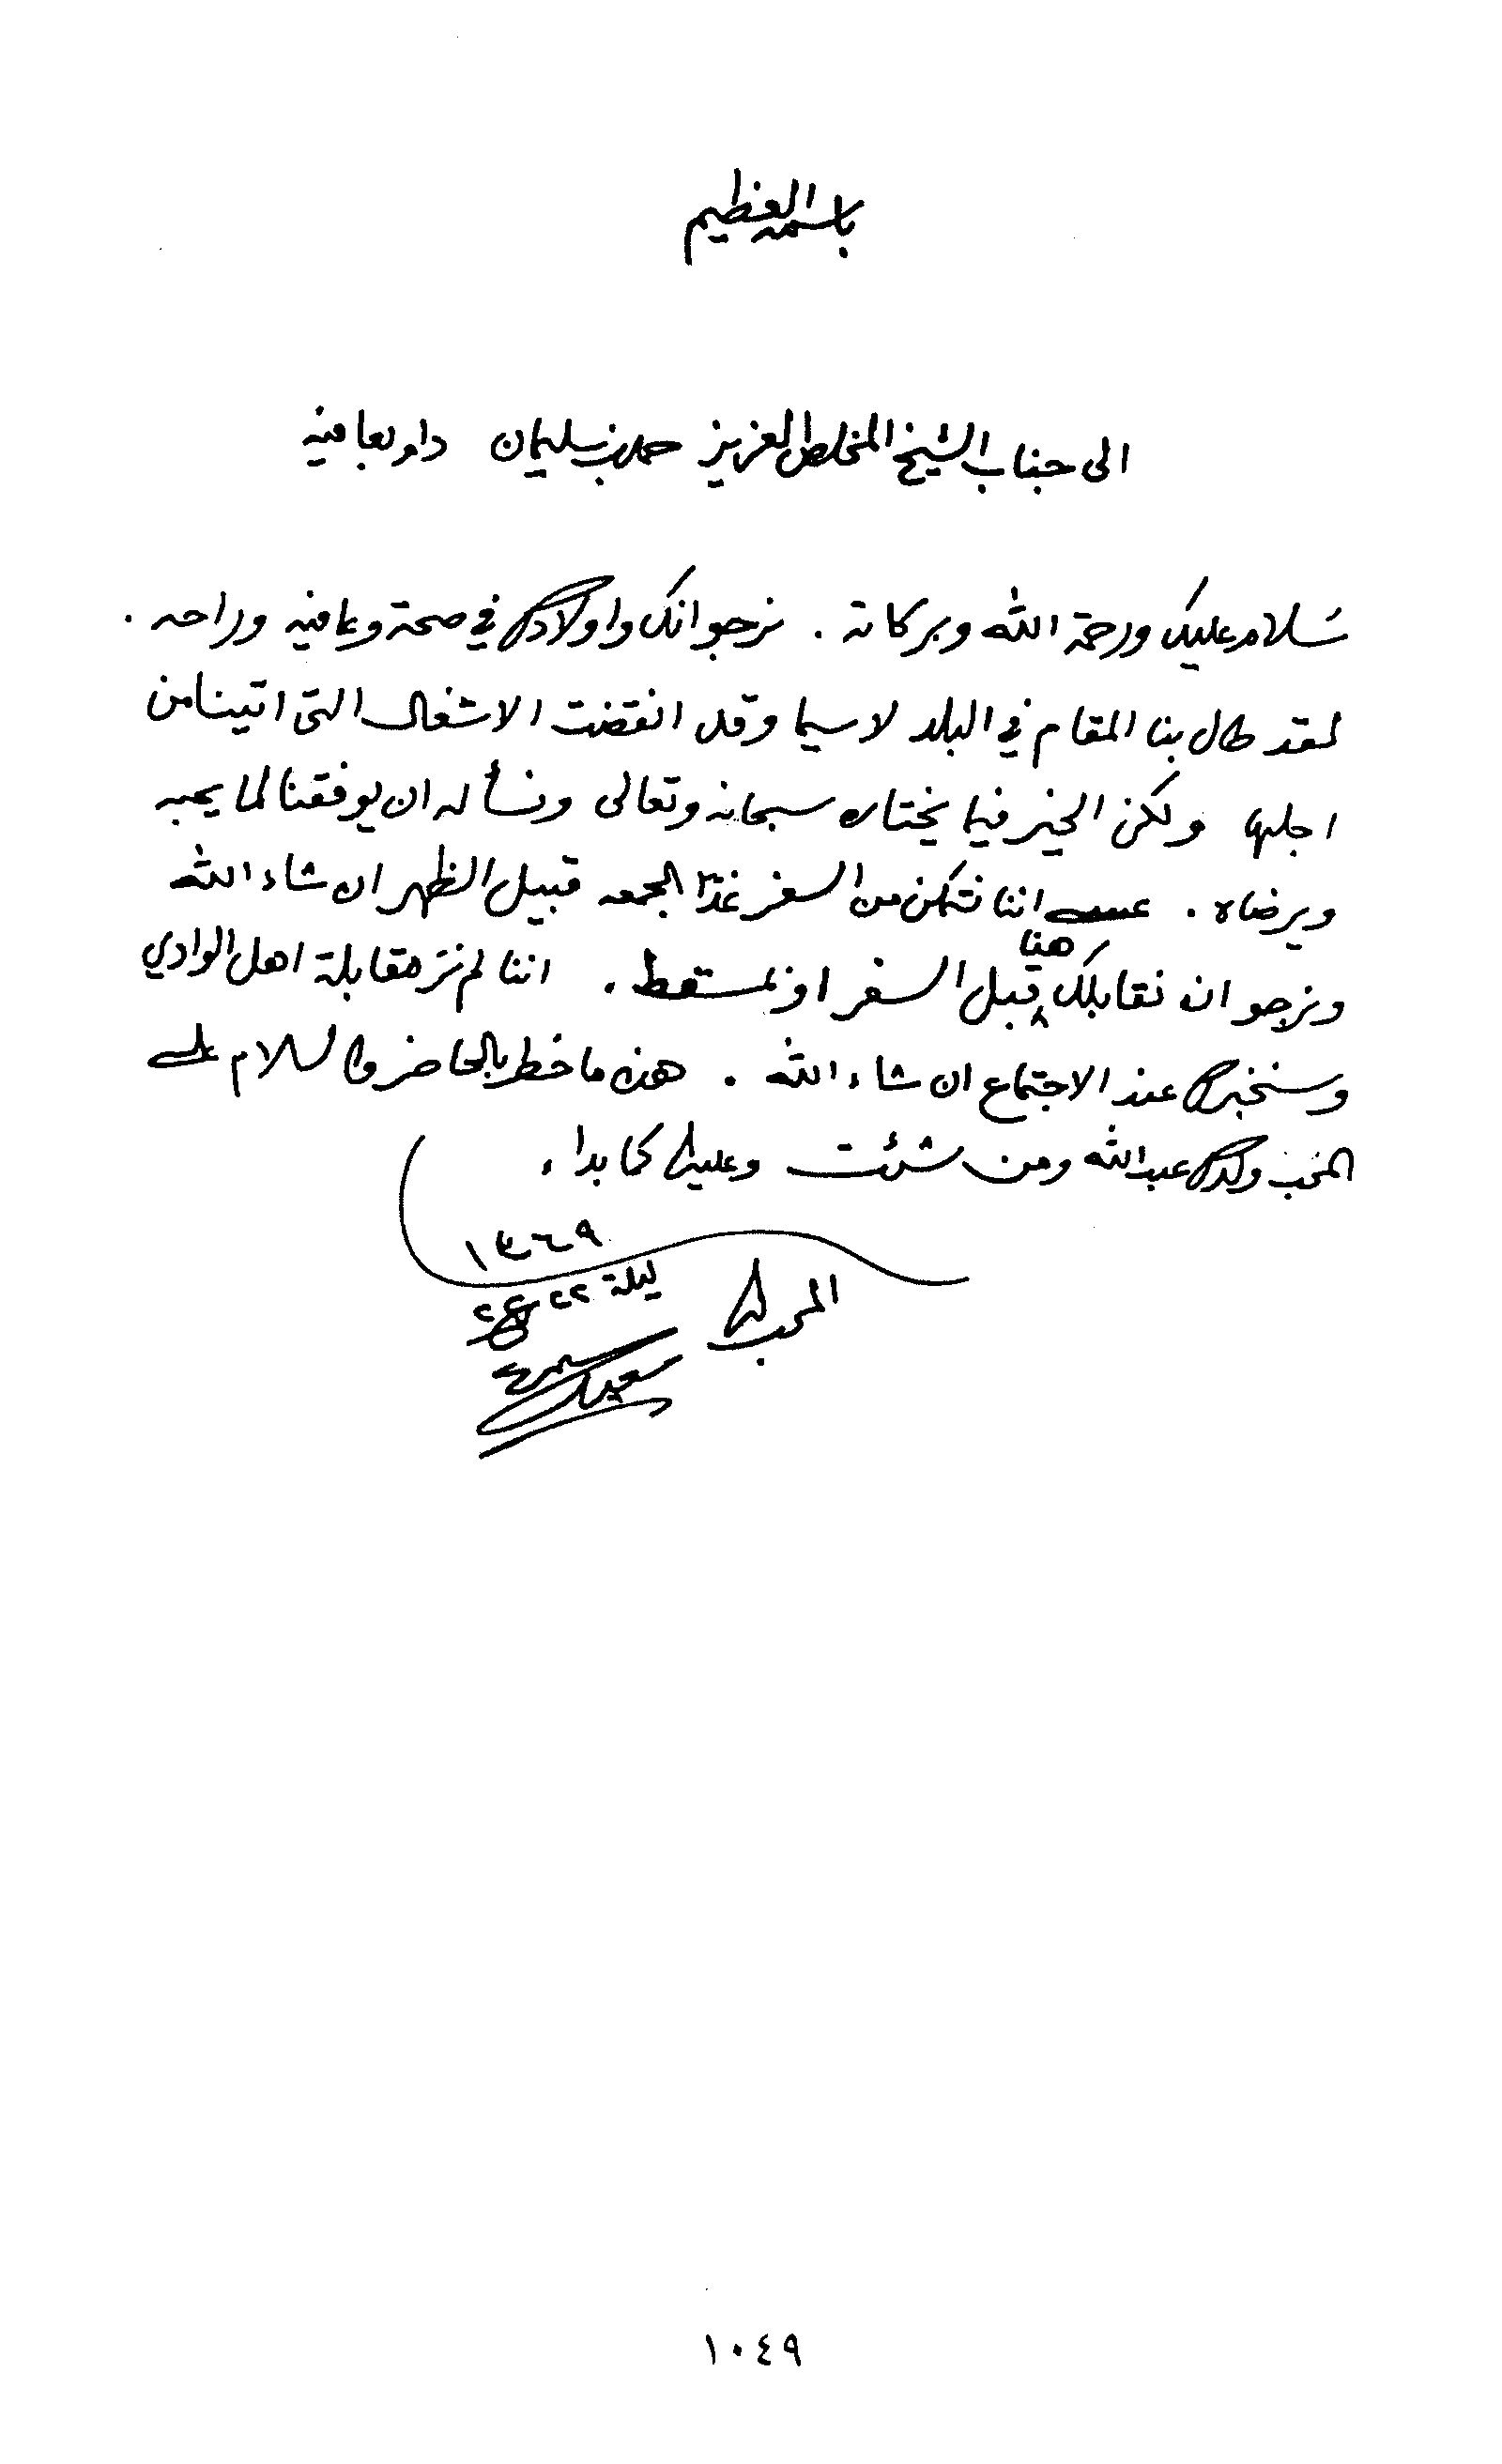 باسمه العظيم
الى جناب الشيخ المخلص العزيز حمد بن سليمان دام بعافيه
سلام عليك ورحمة الله وبركاته . نرجو انك واولادكم في صحة وعافيه وراحه .
لقد طال بنا المقام في البلد لا سيما وقد انقضت الاشغال التي اتينا من
اجلها ولكن الخير فيما يختاره سبحانه وتعالى ونسأله ان يوفقنا لما يحبه
ويرضاه . عسى اننا نتمكن من السفر غدًا الجمعه قبيل الظهر ان شاء الله
ونرجو ان نقابلك هنا قبل السفر او بمسقط . اننا لم نر مقابلة اهل الوادي
وسنخبركم عند الاجتماع ان شاء الله . هذه ما خطر بالخاضر والسلام على
المحب ولدكم عبدالله ومن شئت وعليكم كما بدا ء
١٣٦٩
ليلة ٢٢
المحب لكم
١٠٤٩